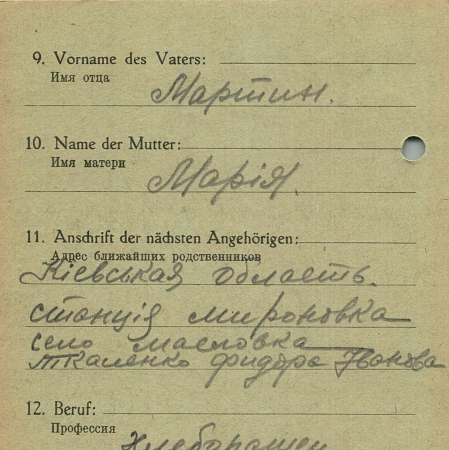 9. Vorname des Vaters:
Имя отца
Мартин.
10. Name der Mutter:
Имя матери
Марія.
11. Anschrift der nächsten Angehörigen:
Адрес ближайших родственников
Кіевськая область.
станція мироновка
село масловка
Ткаленко фидора Іванова
12. Beruf:
Профессия